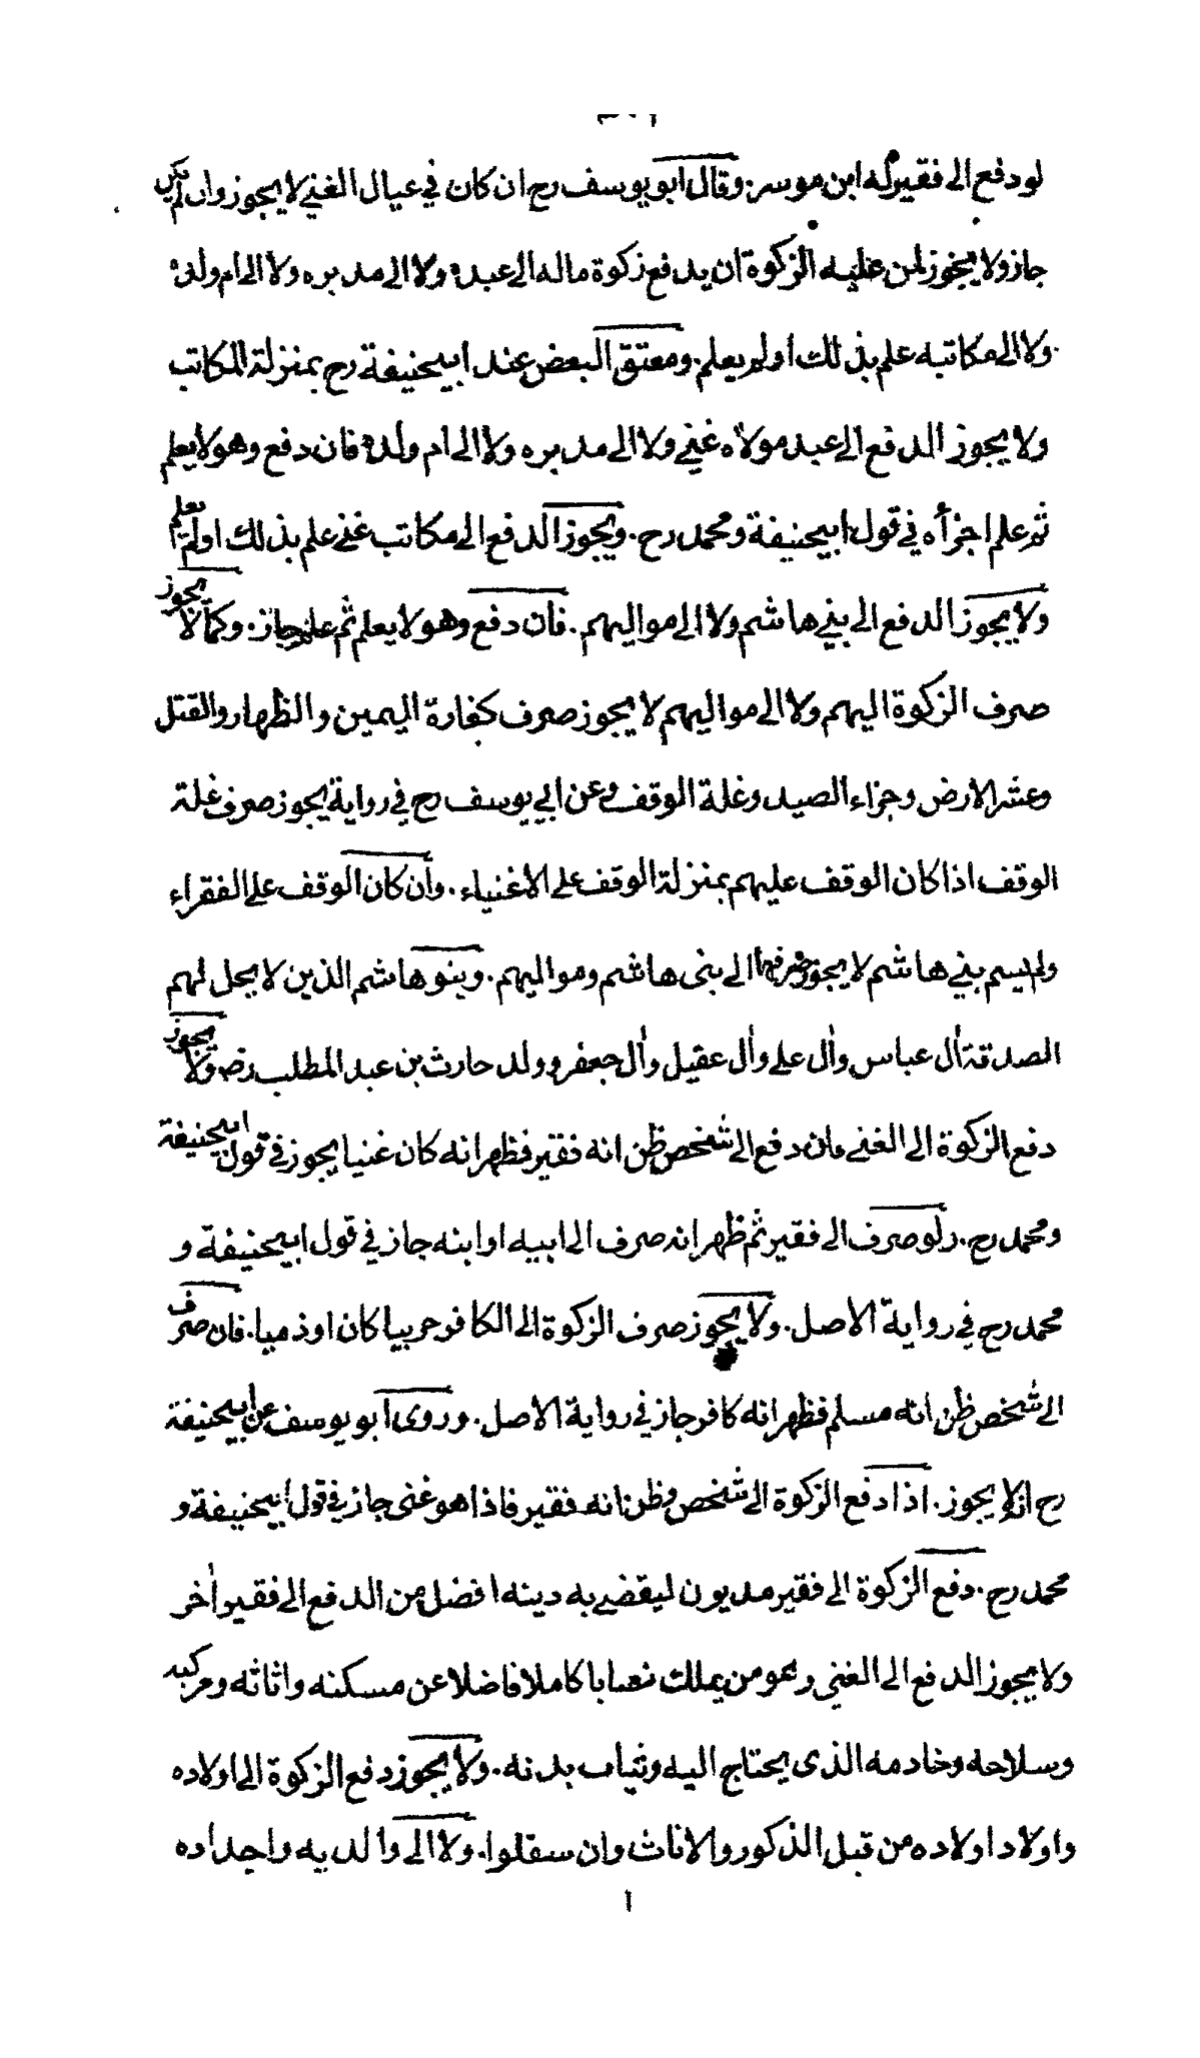 لو دفع الى فقير له ابن موسر. وقال ابو يوسف رح ان كان في عيال الغني لا يجوز وان لم يكن
جاز ولا يجوز لمن عليه الزكوة ان يدفع زكوة ماله الى عبده ولا الى مدبره ولا الى ام ولده
ولا الى مكاتبه علم بذلك او لم يعلم. ومعتق البعض عند ابيحنيفة رح بمنزلة المكاتب
ولا يجوز الدفع الى عبد مولاه غني ولا الى مدبره ولا الى ام ولده فان دفع وهو لا يعلم
ثم علم اجزأه في قول ابيحنيفة ومحمد رح. ويجوز الدفع الى مكاتب غني علم بذلك او لم يعلم
ولا يجوز الدفع الى بني هاشم ولا الى مواليهم. فان دفع وهو لا يعلم ثم علم جاز. وكما لا يجوز
صرف الزكوة اليهم ولا الى مواليهم لا يجوز صرف كفارة اليمين والظهار والقتل
وعشر الارض وجزاء الصيد وغلة الوقف وعن ابي يوسف رح في رواية يجوز صرف غلة
الوقف اذا كان الوقف عليهم بمنزلة الوقف على الاغنياء. وان كان الوقف على الفقراء
ولم يسم بني هاشم لا يجوز صرفها الى بنى هاشم ومواليهم. وبنو هاشم الذين لا يحل لهم
الصدقة اٰل عباس واٰل على واٰل عقيل واٰل جعفر وولد حارث بن عبد المطلب رضـ ولا يجوز
دفع الزكوة الى الغني فان دفع الى شخص ظن انه فقير فظهر انه كان غنيا يجوز في قول ابيحنيفة
ومحمد رح. ولو صرف الى فقير ثم ظهر انه صرف الى ابيه او ابنه جاز في قول ابيحنيفة و
محمد رح في رواية الاصل. ولا يجوز صرف الزكوة الى الكافر حربيا كان او ذميا. فان صرف
الى شخص ظن انه مسلم فظهر انه كافر جاز في رواية الاصل. وروى ابو يوسف عن ابيحنيفة
رح انه لا يجوز. اذا دفع الزكوة الى شخص وظن انه فقير فاذا هو غنى جاز في قول ابيحنيفة و
محمد رح. دفع الزكوة الى فقير مديون ليقضي به دينه افضل من الدفع الى فقير اٰخر
ولا يجوز الدفع الى الغني وهو من يملك نصابا كاملا فاضلا عن مسكنه واثاثه ومركبه
وسلاحه وخادمه الذى يحتاج اليه وثياب بدنه. ولا يجوز دفع الزكوة الى اولاده
واولاد اولاده من قبل الذكور والاناث وان سفلوا. ولا الى والديه واجداده